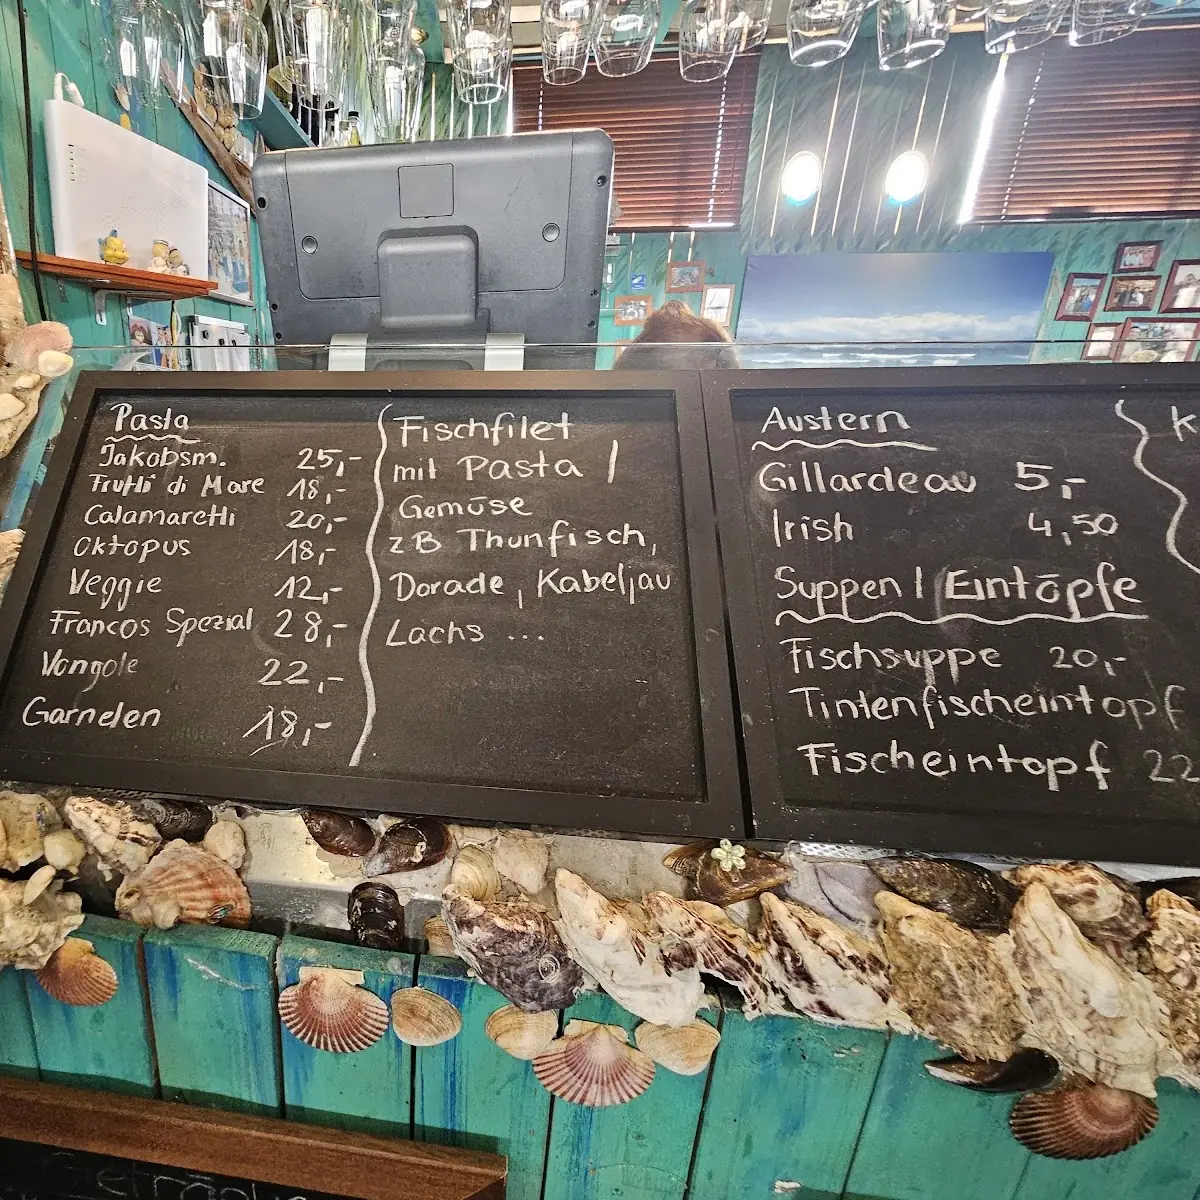 Pasta
Jakobsm. 25,-
Frutti di Mare 18,-
Calamaretti 20,-
Oktopus 18,-
Veggie 12,-
Francos Spezial 28,-
Vongole 22,-
Garnelen 18,-
Fischfilet
mit Pasta /
Gemüse
z B Thunfisch,
Dorade, Kabeljau
Lachs ...
Austern
Gillardeau 5,-
Irish 4,50
Suppen / Eintöpfe
Fischsuppe 20,-
Tintenfischeintopf
Fischeintopf 22
K